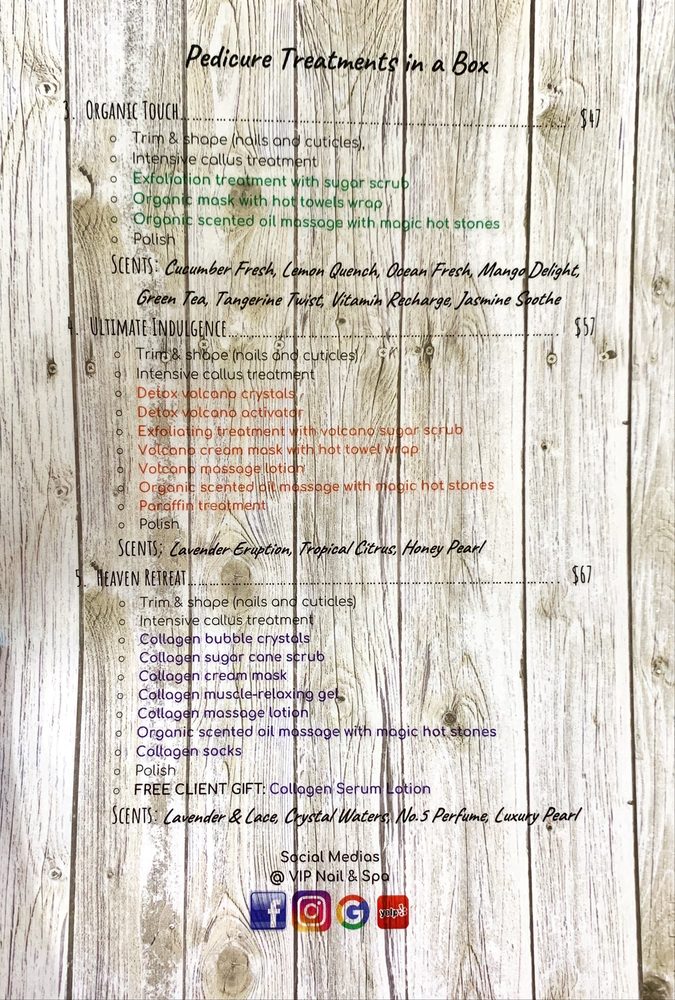 Pedicure Treatments in a Box
3. Organic Touch........................................ $47
Trim & shape (nails and cuticles),
Intensive callus treatment
Exfoliation treatment with sugar scrub
Organic mask with hot towels wrap
Organic scented oil massage with magic hot stones
Polish
Scents: Cucumber Fresh, Lemon Quench, Ocean Fresh, Mango Delight,
Green Tea, Tangerine Twist, Vitamin Recharge, Jasmine Soothe
4. Ultimate Indulgence........................................ $57
Trim & shape (nails and cuticles)
Intensive callus treatment
Detox volcano crystals
Detox volcano activator
Exfoliating treatment with volcano sugar scrub
Volcano cream mask with hot towel wrap
Volcano massage lotion
Organic scented oil massage with magic hot stones
Paraffin treatment
Polish
Scents; Lavender Eruption, Tropical Citrus, Honey Pearl
5. Heaven Retreat........................................ $67
Trim & shape (nails and cuticles)
Intensive callus treatment
Collagen bubble crystals
Collagen sugar cane scrub
Collagen cream mask
Collagen muscle-relaxing gel
Collagen massage lotion
Organic scented oil massage with magic hot stones
Collagen socks
Polish
FREE CLIENT GIFT: Collagen Serum Lotion
Scents: Lavender & Lace, Crystal Waters, No.5 Perfume, Luxury Pearl
Social Medias
@ VIP Nail & Spa
f G yelp